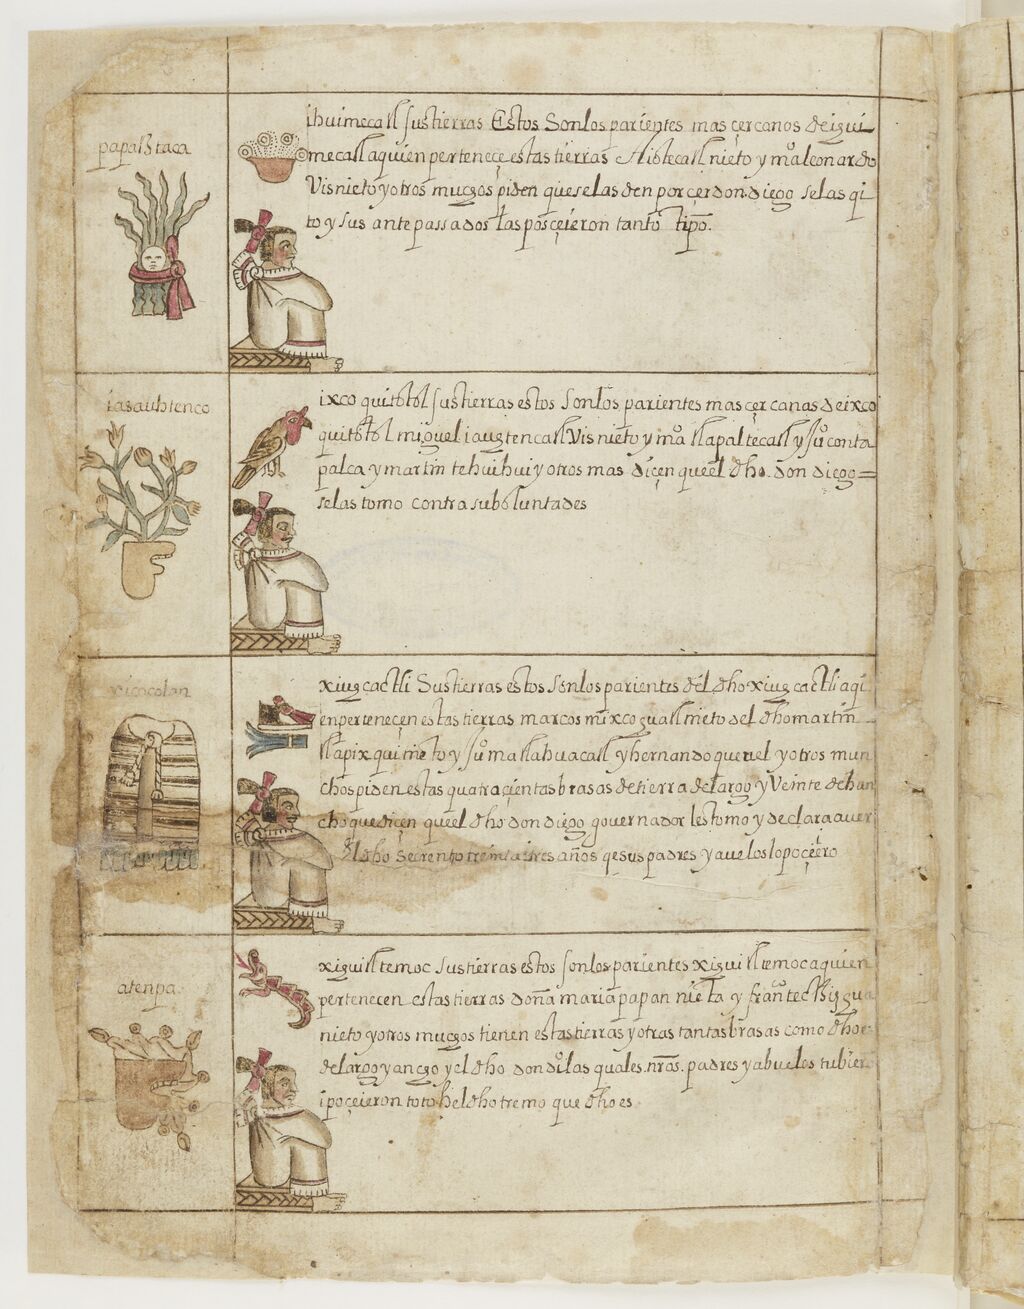 papalstaca
ihuimecatl sustierras Estos Sonlos parientes mas çercanos deizqui
mecatl aquien pertenece estas tierras nieto y mᵃ leonardo
Visnieto y otros muczos piden queselas den por don diego selas qi
to y sus ante passados las posçeieron tanto tipo.
iasauhtenco
ixco quitotol sustierras estos Sonlos parientes mas çercanas de ixco
quitotol miguel iauztencatl Visnieto y mᵃ tlapaltecatl y juº conta
palca y martin tehuihui y otros mas diçen queel dho. don diego
selas tomo contra suboluntades
xicocolan
xiuzcactli Sustierras estos Sonlos parientes del dho xiuzcactli aqi
enperteneçen estas tierras marcos mixcozuatl nieto del dho martin
tlapixqui nieto y juº matlahuacatl y hernando queuel y otros mun
chos piden estas quatroçientas brasas detierra delargo y Veinte dehan
cho quediçen queel dho don diego governador lestomo y declara aver
dho treinta itres años qe sus padres y avuelos lo poçeiero
atenpa
xizuitltemoc sustierras estos sonlos parientes xizuitltemoc aquien
pertenecen estas tierras doña maria papan nieta y franco tectlsizgua
nieto y otros muczos tienen estas tierras y otras tantas brasas como dhoe
delargo y anczo y el dho don dilas quales. nros. padres y abuelos tubier
i poçeieron toto el dho tremo que dho es